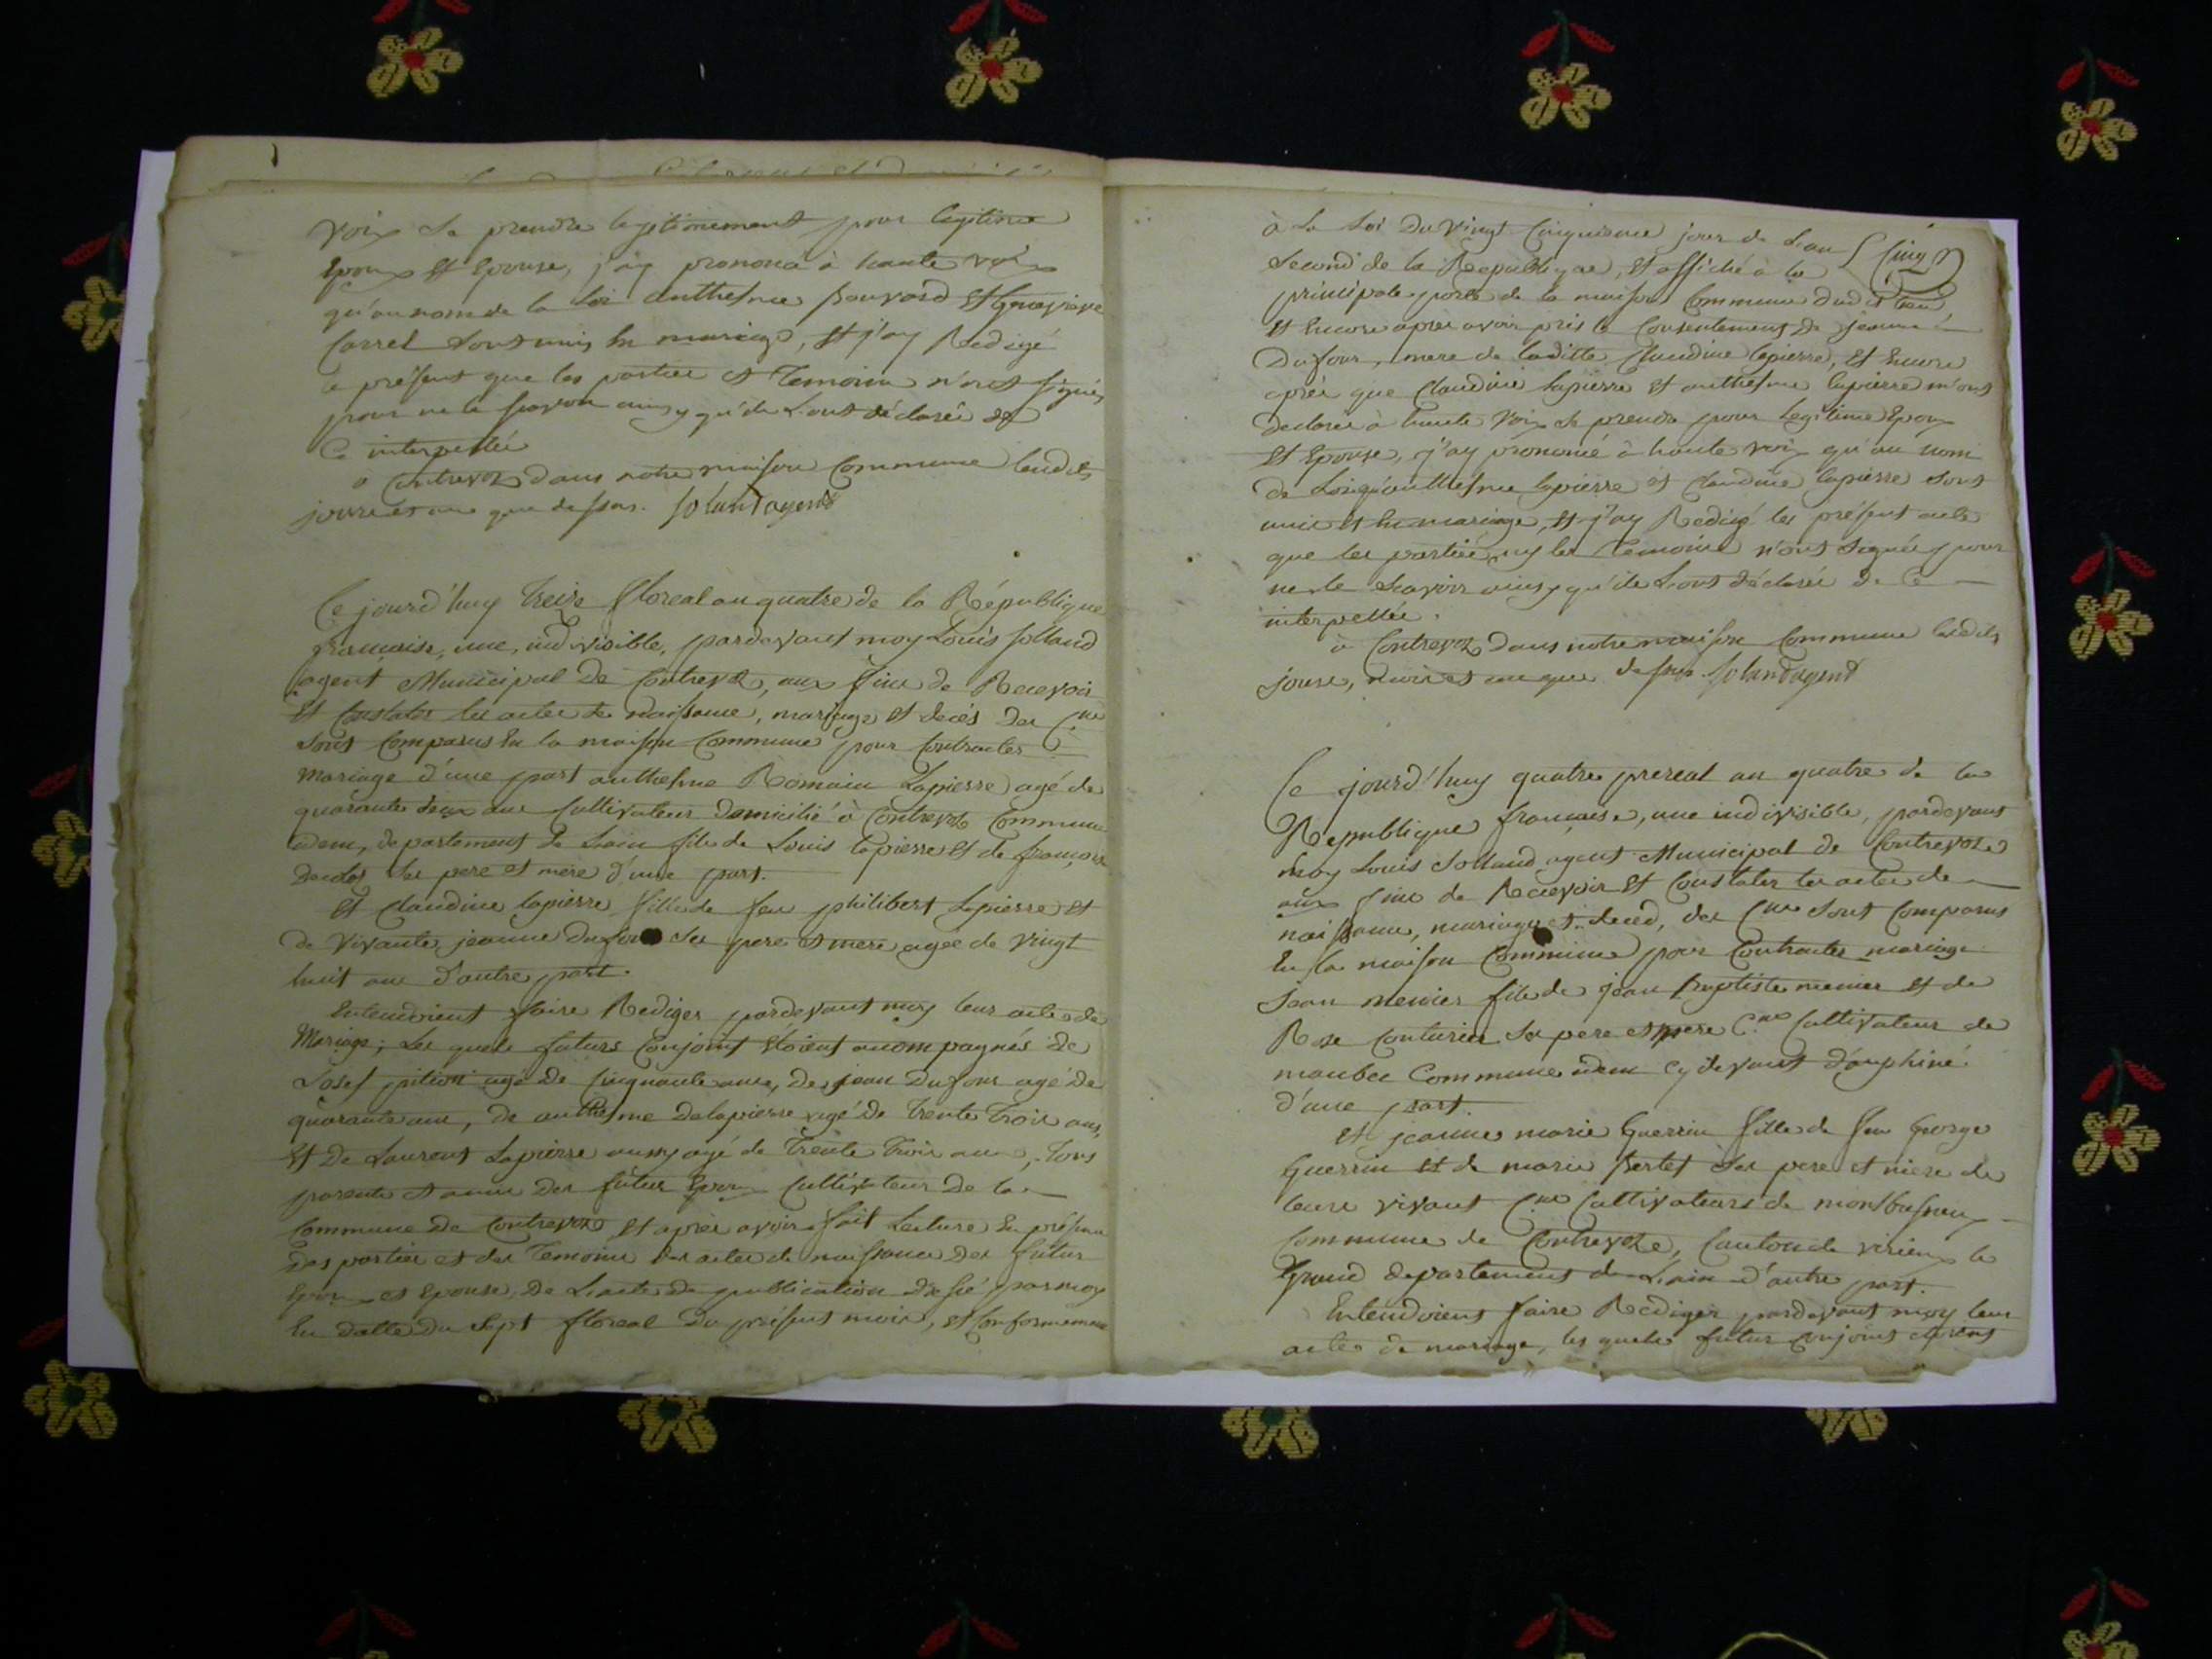 voix se prendre legitimement pour legitime
Epoux et Epouse, j'ay prononcé à haute voix
qu'au nom de la loi anthelme Bouvard et
Carrel sont unis En mariage, et j'ay Redigé
le présent que les parties et temoins n'ont signés
pour ne le sçavoir ainsy qu'ils L'ont déclarés de
Ce interpellés
a Contrevoz dans notre maison Commune lesdits
jours et an que dessus. Solland agent
Ce jourd'huy treize floreal an quatre de la République
françoise, une, indivisible, pardevant moy Louis Solland
agent Municipal de Contrevoz, aux fins de Recevoir
Et Constater les actes de naissance, mariage et decés des C.ns
sont Comparus En la maison Commune pour Contracter
mariage d'une part anthelme Romain Lapierre agé de
quarante deux ans Cultivateur domicilié à Contrevoz Commune
idem, departement de Lain fils de Louis lapierre et de françoise
ses pere et mere d'une part.
Et Claudine lapierre fille de feu philibert Lapierre et
de vivante jeanne dufour ses pere et mere agée de vingt
huit ans d'autre part.
Entendoient faire Rediger pardevant moy leur acte de
Mariage; Les quels futurs Conjoint étoient acompagnés de
Josef pition agé de Cinquante ans, de jean Dufour agé de
quarante ans, de anthelme Delapierre agé de trente trois ans,
Et De Laurent Lapierre aussy agé de trente trois ans, tous
parents et amis des futur Epoux Cultivateur de la
Commune de Contrevoz Et après avoir fait lecture En présence
des parties et des temoins des actes de naissance des futur
Epoux et Epouse, de L'acte de publication dressé par moy
En datte du Sept floreal du présent mois, et Conformement
à La Loi du vingt Cinquieme jour de L'an
Cinq
second de la Republique, et affiché à la
principale porte de la maison Commune dudit lieu
et Encore après avoir pris le Consentement de jeanne
Dufour, mere de laditte Claudine lapierre, et Encore
après que Claudine lapierre et anthelme lapierre m'ont
declarés à haute voix se prendre pour legitime Epoux
Et Epouse, j'ay prononcé à haute voix qu'au nom
de Loi qu'anthelme lapierre et Claudine lapierre sont
unis et En mariage, et j'ay Redigé les présent acte
que les parties ny les temoins n'ont signés pour
ne le sçavoir ainsy qu'ils L'ont déclarés de Ce
interpellés.
à Contrevoz dans notre maison Commune lesdits
jours, mois et an que dessus. Solland agent
Ce jourd'huy quatre prereal an quatre de la
Republique françoise, une indivisible, pardevant
moy Louis Solland agent Municipal de Contrevoze
aux fins de Recevoir Et Constater les actes de
naissance, mariage et deced, des C.ns sont Comparus
En la maison Commune pour Contracter mariage
Jean menier fils de jean Baptiste menier et de
Rose Couturier ses pere et mere C.ns Cultivateur de
maubec Commune idem cy devant dauphiné.
d'une part.
Et jeanne marie Guerrin fille de feu George
Guerrin et de marie Bertet ses pere et mere de
leurs vivant C.ns Cultivateurs de
Commune de Contrevoze, Canton de virieux le
Grand departement de L'ain d'autre part.
Entendoient faire Rediger pardevant moy leur
actes de mariage, les quels futur Conjoint étoient